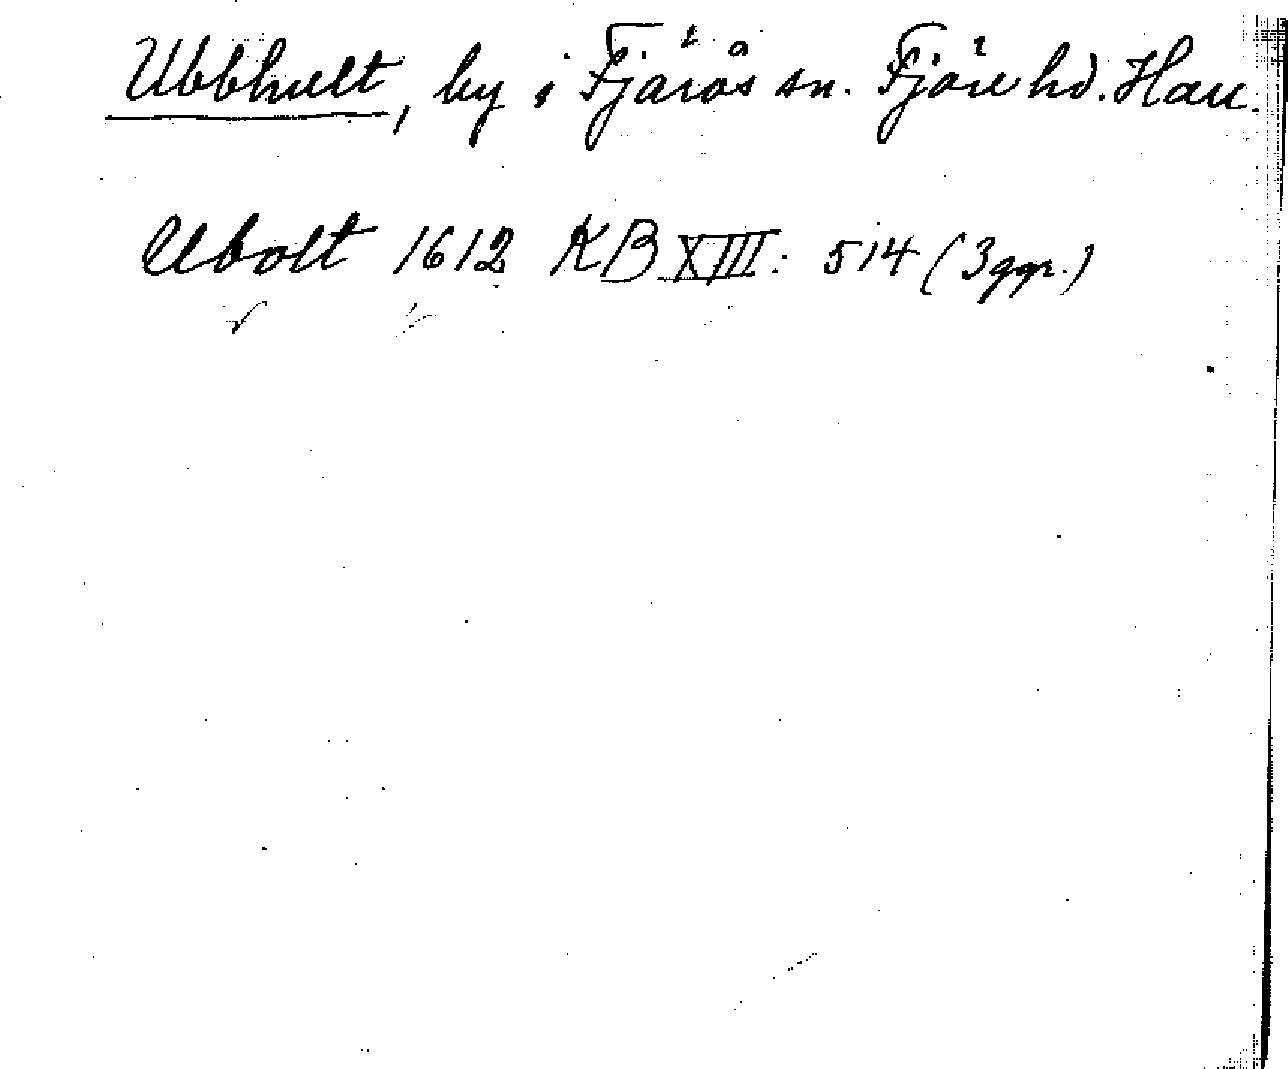 Ubbhult, by i Fjärås sn. Fjäre hd. Hall.
Ubolt 1612 KB XIII: 514 (3 ggr.)